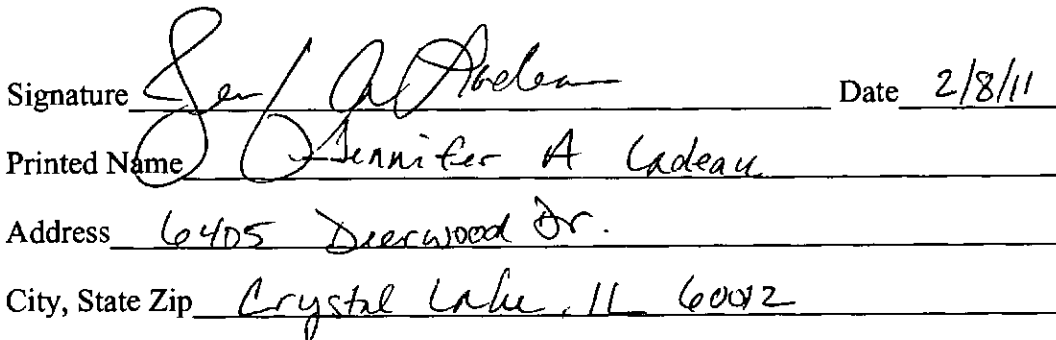 Signature Date 2/8/11
Printed Name Jennifer A Cadeau
Address 6405 Deerwood Dr.
City, State Zip Crystal Lake, IL 60012